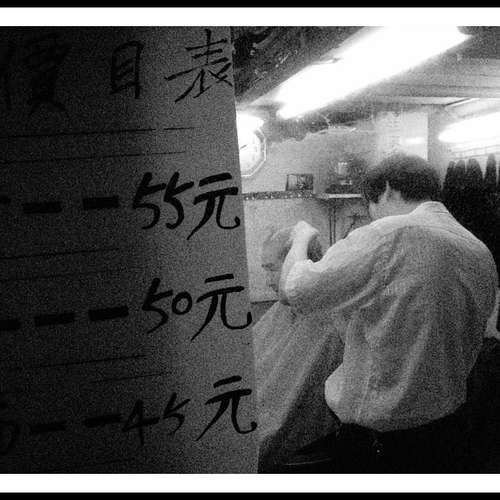 價目表
---55元
---50元
--45元